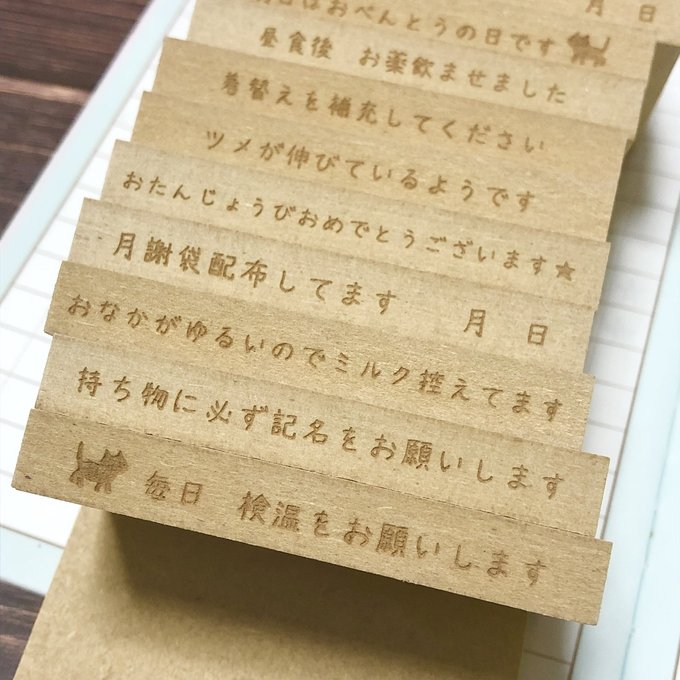 月 日
はおべんとうの日です
昼食後 お薬飲ませました
着替えを補充してください
ツメが伸びているようです
おたんじょうびおめでとうございます★
月謝袋配布してます 月 日
おなかがゆるいのでミルク控えてます
持ち物に必ず記名をお願いします
毎日 検温をお願いします